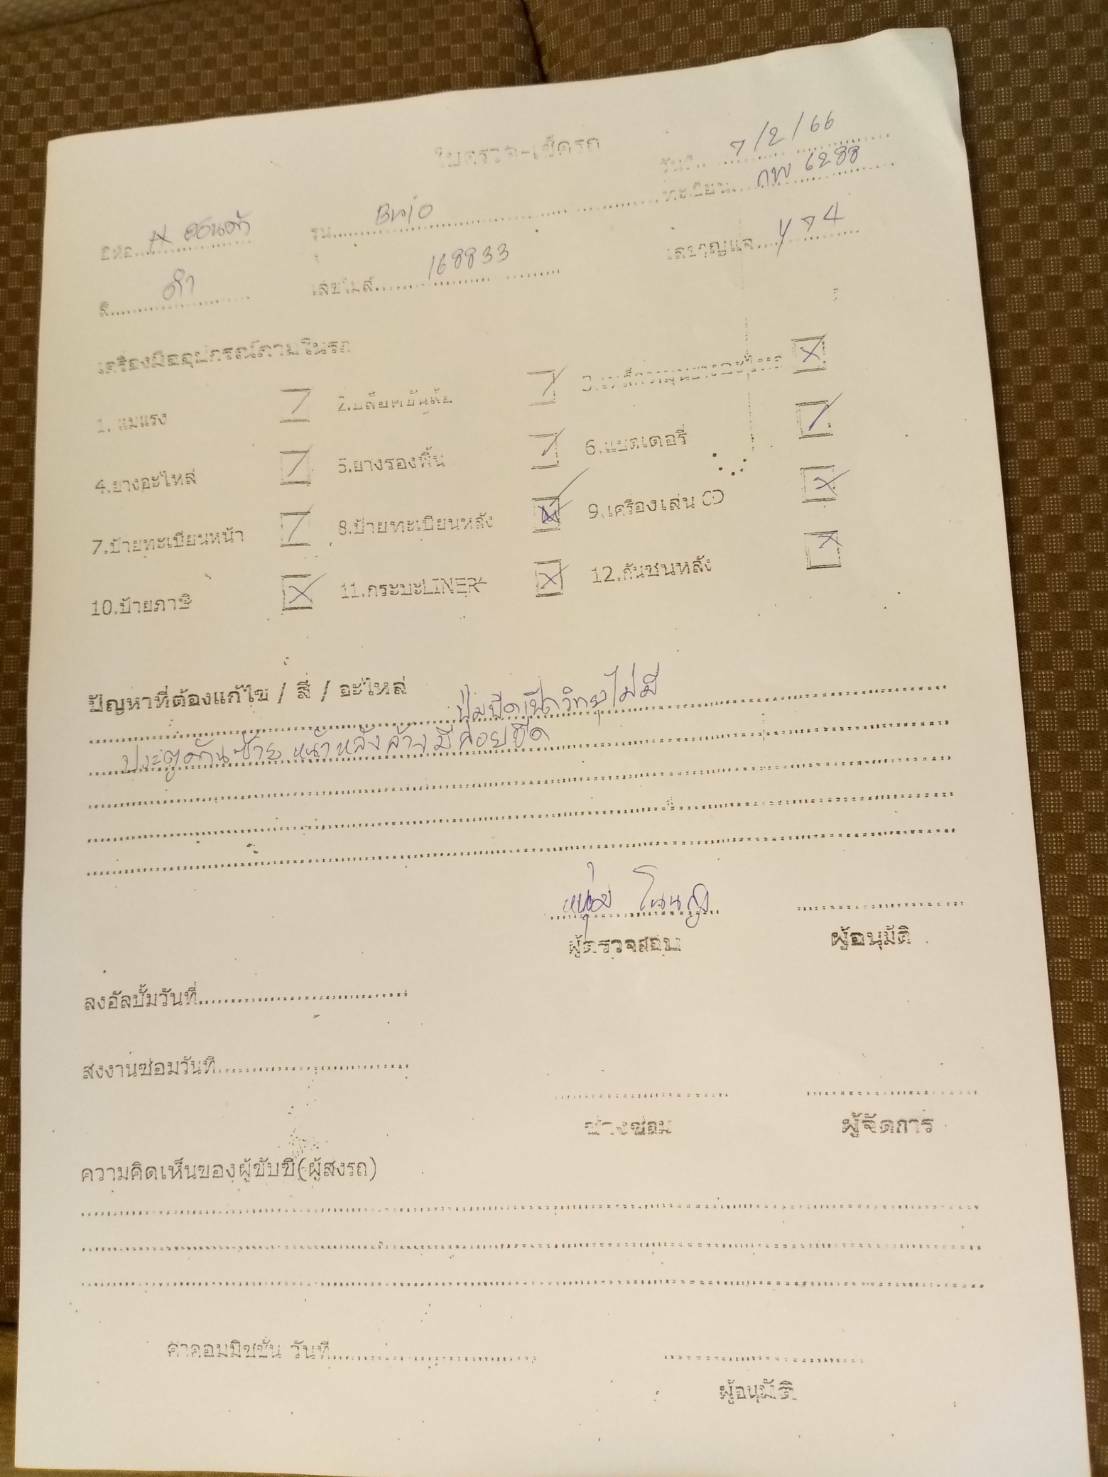 ใบตรวจ-เช็ครถ
วันที่ 7/2/66
ยี่ห้อ ฮอนด้า รุ่น Brio ทะเบียน กพ 6288
สี ดำ เลขไมล์ 168833 เลขกุญแจ 474
เครื่องมืออุปกรณ์ภายในรถ
1. แม่แรง 2.บล๊อคขันล้อ
4.ยางอะไหล่ 5.ยางรองพื้น 6.แบตเตอรี่
7.ป้ายทะเบียนหน้า 8.ป้ายทะเบียนหลัง 9.เครื่องเล่น CD
10.ป้ายภาษี 11.กระบะLINER 12.กันชนหลัง
ปัญหาที่ต้องแก้ไข / สี / อะไหล่
ปุ่มปิดเปิดวิทยุไม่มี
ประตูด้านซ้าย หน้าหลังล่างมีลอยขีด
หนุ่ม
ผู้ตรวจสอบ ผู้อนุมัติ
ลงอัลบั้มวันที่
ส่งงานซ่อมวันที่
ช่างซ่อม ผู้จัดการ
ความคิดเห็นของผู้ขับขี่(ผู้ส่งรถ)
ค่าคอมมิชชั่น วันที่
ผู้อนุมัติ